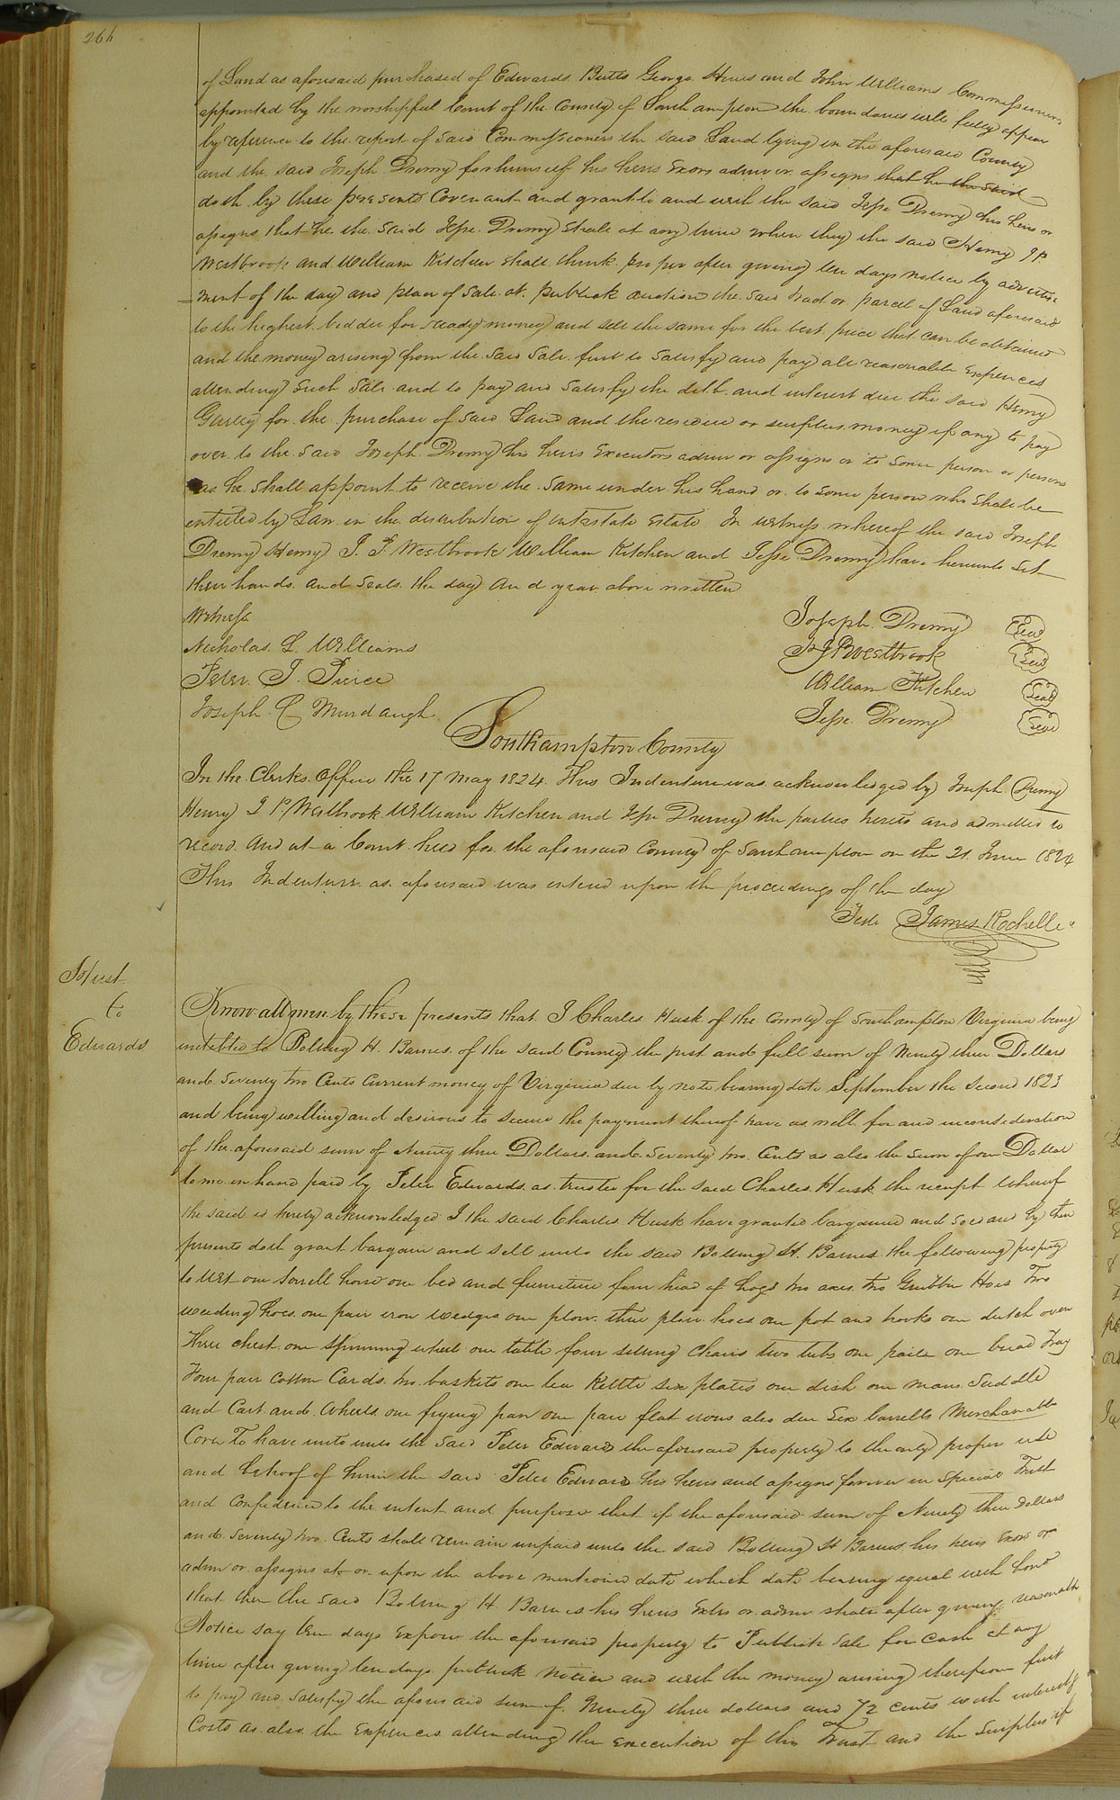 264
of Land as aforesaid purchased of Edwards Butts George Hines and John Williams Commissioners
appointed by the worshipful Court of the County of Southampton the boundaries will fully appear
by reference to the report of said Commissioners the said Land lying in the aforesaid County
and the said Joseph Drewry for himself his heirs Exors admrs or assigns that he the said
doth by these presents Covenant and grant to and with the said Jesse Drewry his heirs or
assigns that he the said Jesse Drewry shall at any time when they the said Henry J P
Westbrook and William Kitchen shall think proper after giving ten days notice by advertise
ment of the day and place of sale at publick auction the said tract or parcel of Land aforesaid
to the highest bidder for ready money and sell the same for the best price that can be obtained
and the money arising from the said Sale first to satisfy and pay all reasonable expences
attending such sale and to pay and satisfy the debt and interest due the said Henry
Gurley for the purchase of said Land and the residue or surplus money if any to pay
over to the said Joseph Drewry his heirs Executors admrs or assigns or to some person or persons
as he shall appoint to receive the same under his hand or to some person who shall be
entitled by Law in the distribution of intestate Estate In witness whereof the said Joseph
Drewry Henry J. P. Westbrook William Kitchen and Jesse Drewry have hereunto set
their hands and seals the day and year above written
Witness
Joseph Drewry Seal
Nicholas L Williams
H J P Westbrook Seal
Peter J. Pierce
William Kitchen Seal
Joseph C Murdaugh
Jesse Drewry Seal
Southampton County
In the Clerks Office the 17 May 1824 This Indenture was acknowledged by Joseph Drewry
Henry J P Westbrook William Kitchen and Jesse Drewry the parties hereto and admitted to
record And at a Court held for the aforesaid County of Southampton on the 21 June 1824
This Indenture as aforesaid was entered upon the proceedings of the day
Teste James Rochelle
to
Edwards
Know all men by these presents that I Charles Husk of the County of Southampton Virginia being
indebted to Bolling H. Barnes of the said County the just and full sum of Ninety three Dollars
and Seventy two Cents Current money of Virginia due by note bearing date September the Second 1823
and being willing and desirous to secure the payment thereof have as well for and in consideration
of the aforesaid sum of Ninety three Dollars and Seventy two Cents as also the Sum of one Dollar
to me in hand paid by Peter Edwards as trustee for the said Charles Husk the receipt whereof
the said is hereby acknowledged I the said Charles Husk have granted bargained and sold and by these
presents doth grant bargain and sell unto the said Bolling H. Barnes the following property
to wit one Sorrell horse one bed and furniture four head of hogs two axes two Grubbin Hoes Two
weeding hoes one pair iron wedges one plow three plow hoes one pot and hooks one dutch oven
Three chest one Spinning wheel one table four setting chairs two tubs one paile one bread tray
Four pair Cotton Cards two baskets one tea Kettle six plates one dish one mans Saddle
and Cart and Wheels one frying pan one pair flat irons also Six barrells Merchantable
Corn To have unto the said Peter Edwards the aforesaid property to the only proper use
and behoof of him the said Peter Edwards his heirs and assigns forever in Special Trust
and Confidence to the intent and purpose that if the aforesaid sum of Ninety three Dollars
and Seventy two Cents shall remain unpaid unto the said Bolling H Barnes his heirs Exors or
admr or assigns at or upon the above mentioned date which date bearing equal with
that then the said Bolling H. Barnes his heirs Extrs or admr shall after giving reasonable
Notice say ten days expose the aforesaid property to Publick Sale for Cash at any
time after giving ten days publick notice and with the money arising therefrom first
to pay and satisfy the aforesaid sum of Ninety three dollars and 72 cents with interest
Costs as also the Expences attending the execution of this Trust and the Surplus if